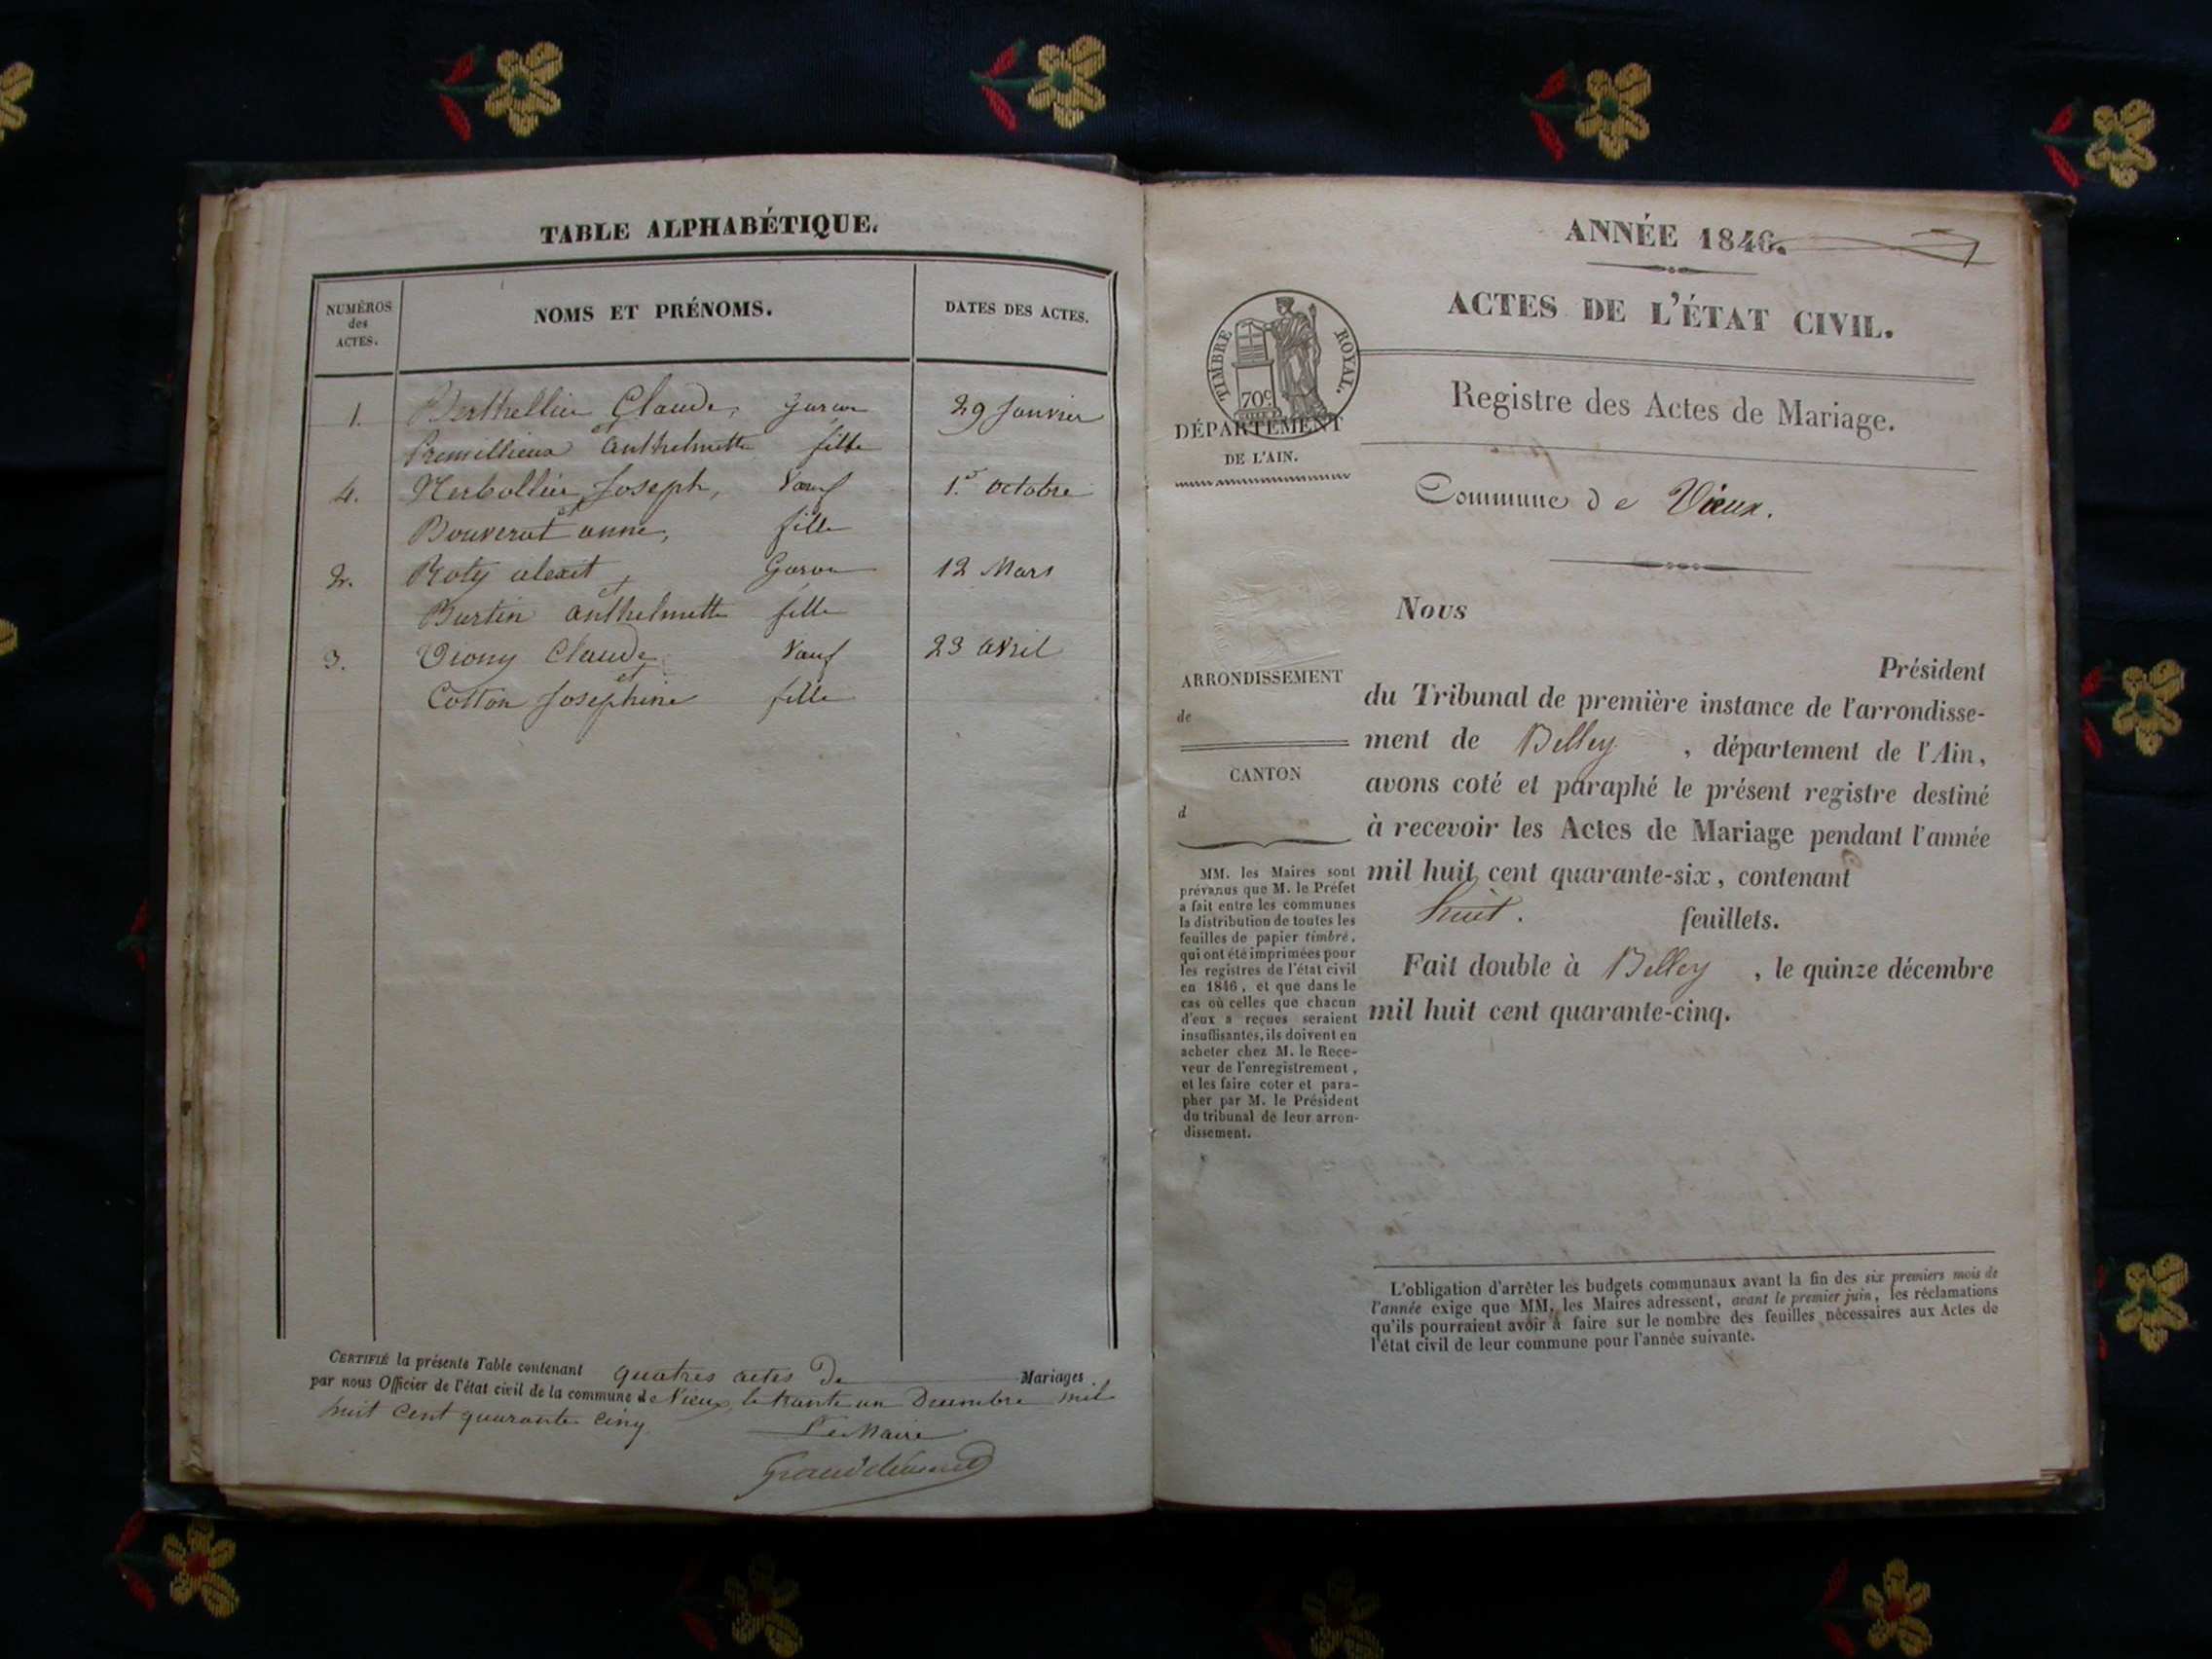 TABLE ALPHABÉTIQUE.
NUMÉROS
des
ACTES.
NOMS ET PRÉNOMS.
DATES DES ACTES.
1. Berthellier Claude, garcon 29 Janvier
et
Premillieux anthelmette fille
4. Merbollier Joseph, Vauf 1.r octobre
et
Bouverat anne, fille
2. Roty alexit Garcon 12 Mars
et
Burtin anthelmette fille
3. Claude Vauf 23 avril
et
Cotton Josephine fille
CERTIFIÉ la présente Table contenant quatres actes de Mariages
par nous Officier de l'état civil de la commune de Vieux, le trante un Decembre mil
huit Cent quarante Cinq
Le Maire
ANNÉE 1846.
ACTES DE L'ÉTAT CIVIL.
TIMBRE ROYAL.
70c
DÉPARTEMENT
DE L'AIN.
Registre des Actes de Mariage.
Commune de Vieux.
Nous
Président
du Tribunal de première instance de l'arrondisse-
ment de Belley , département de l'Ain,
avons coté et paraphé le présent registre destiné
à recevoir les Actes de Mariage pendant l'année
mil huit cent quarante-six, contenant
huit. feuillets.
Fait double à Belley , le quinze décembre
mil huit cent quarante-cinq.
ARRONDISSEMENT
de
CANTON
d
MM. les Maires sont
prévenus que M. le Préfet
a fait entre les communes
la distribution de toutes les
feuilles de papier timbré,
qui ont été imprimées pour
les registres de l'état civil
en 1846, et que dans le
cas où celles que chacun
d'eux a reçues seraient
insuffisantes, ils doivent en
acheter chez M. le Rece-
veur de l'enregistrement,
et les faire coter et para-
pher par M. le Président
du tribunal de leur arron-
dissement.
L'obligation d'arrêter les budgets communaux avant la fin des six premiers mois de
l'année exige que MM. les Maires adressent, avant le premier juin, les réclamations
qu'ils pourraient avoir à faire sur le nombre des feuilles nécessaires aux Actes de
l'état civil de leur commune pour l'année suivante.